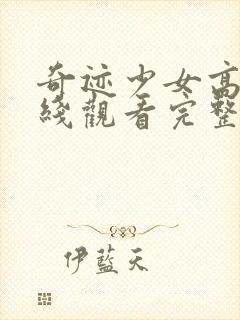 奇迹少女高
綫觀看完整
伊藍天